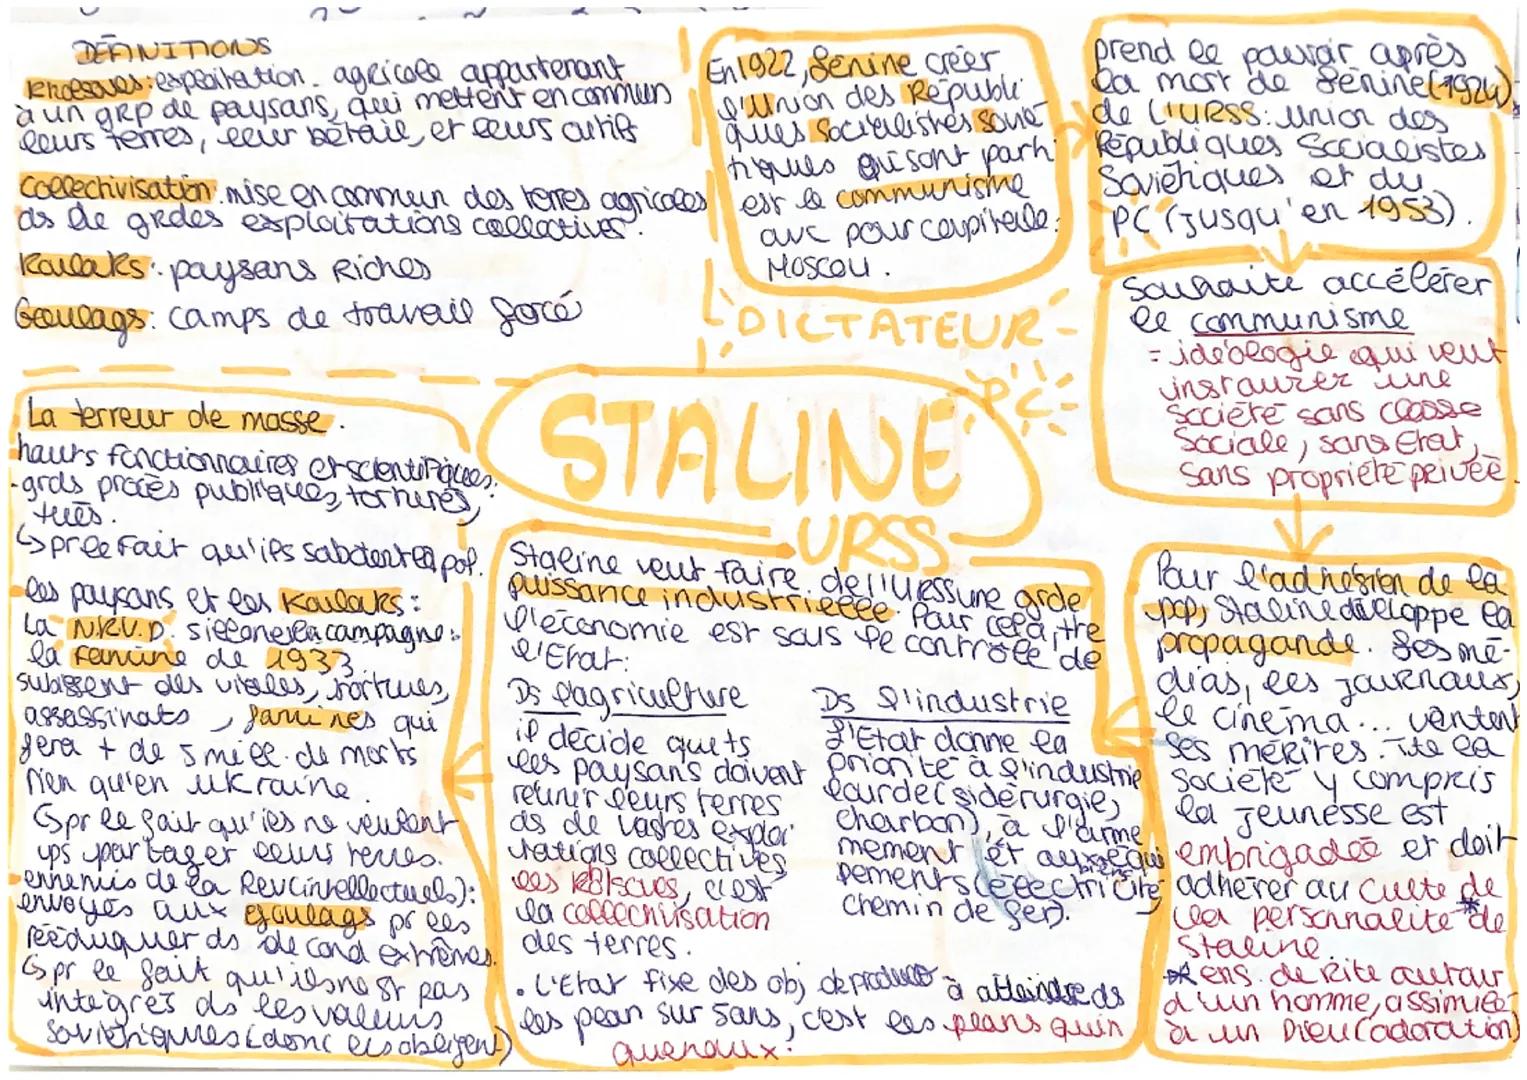 DÉFINITIONS
Kholsoves: exploitation agricole appartenant
à un grp de paysans, qui mettent en commun
leurs terres, leur bétail, et leurs outils
Collectivisation: mise en commun des terres agricoles
ds de grdes exploitations collectives.
Koulaks: paysans Riches
Goulags: camps de travail forcé
En 1922, Lénine créer
l'Union des Républi
ques Socialistes Sovié
tiques qui sont parti
est le communisme
avc pour capitale:
Moscou.
prend le pouvoir après
la mort de Lénine (1924)
de l'URSS: Union des
Républiques Socialistes
Soviétiques et du
PC (jusqu'en 1953).
Souhaite accélérer
le communisme
= idéologie qui veut
instaurer une
société sans classe
sociale, sans Etat,
sans propriété privée
-DICTATEUR-
PC
STALINE
URSS
La terreur de masse.
hauts fonctionnaires et scientifiques:
-grds procès publiques, torturés,
tués.
↳ pr le fait qu'ils sabotent la pop.
-les paysans et les Koulaks:
La N.K.V.D. sillone la campagne:
la famine de 1933.
subissent des violes, tortures,
assassinats, famines qui
fera + de 5 mill. de morts
rien qu'en Ukraine.
↳ pr le fait qu'ils ne veulent
ps partager leurs terres.
-ennemis de la Rev (intellectuels):
envoyés aux goulags pr les
rééduquer ds de cond extrêmes.
↳ pr le fait qu'ils ne st pas
intégrés ds les valeurs
soviétiques (donc els obligent)
Staline veut faire de l'URSS une grde
puissance industrielle. Pour cela, tte
l'économie est sous le contrôle de
l'Etat:
Ds l'agriculture
il décide que ts
les paysans doivent
réunir leurs terres
ds de vastes exploi
tations collectives
les kolscus, c'est
la collectivisation
des terres.
Ds l'industrie
L'Etat donne la
priorité à l'industrie
lourde (sidérurgie,
charbon), à l'arme
mement et aux équi
pements (électricité
chemin de fer).
. L'Etat fixe des obj de product° à atteindre ds
les plan sur 5ans, c'est les plans quin
quenaux.
Pour l'adhésion de la
pop, Staline développe la
propagande. Les mé-
dias, les journaux,
le cinéma... vantent
ses mérites. Tte la
société y compris
la jeunesse est
embrigadée et doit
adhérer au culte de
la personnalité* de
Staline.
* ens. de Rite autour
d'un homme, assimilé
à un Dieu (adoration)